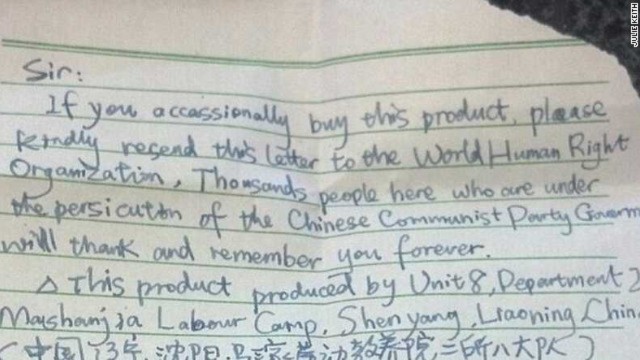 Sir:
If you occassionally buy this product, please
kindly resend this letter to the World Human Right
Organization, Thousands people here who are under
the persicuton of the Chinese Communist Party Governm
will thank and remember you forever.
△ This product produced by Unit 8, Department 2
Mashanjia Labour Camp, Shenyang, Liaoning Chin
(中国, 辽宁, 沈阳, 马三家劳动教养院二所八大队)
JULIE KEITH